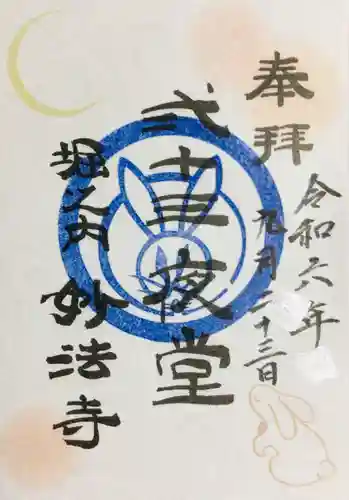 奉拝
令和六年
九月二十三日
二十三夜堂
堀之内
妙法寺